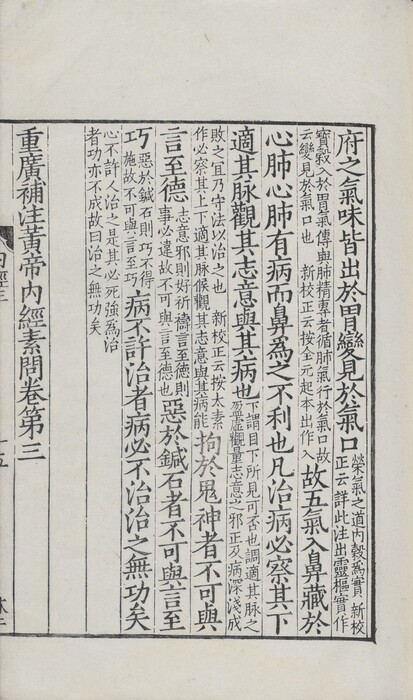 府之氣味皆出於胃變見於氣口榮氣之道內穀為實 新校
正云詳此注出靈樞實作
寶穀入於胃氣傳與肺精專者循肺氣行於氣口故
云變見於氣口也 新校正云按全元起本出作入故五氣入鼻藏於
心肺心肺有病而鼻為之不利也凡治病必察其下
適其脉觀其志意與其病也下謂目下所見可否也調適其脉之
盈虛觀量志意之邪正及病深淺成
敗之宜乃守法以治之也 新校正云按太素
作必察其上下適其脉候觀其志意與其病能拘於鬼神者不可與
言至德志意邪則好祈禱言至德則
事必違故不可與言至德也惡於鍼石者不可與言至
巧惡於鍼石則巧不得
施故不可與言至巧病不許治者病必不治治之無功矣
心不許人治之是其必死強為治
者功亦不成故曰治之無功矣
重廣補注黃帝內經素問卷第三
內經三
十五